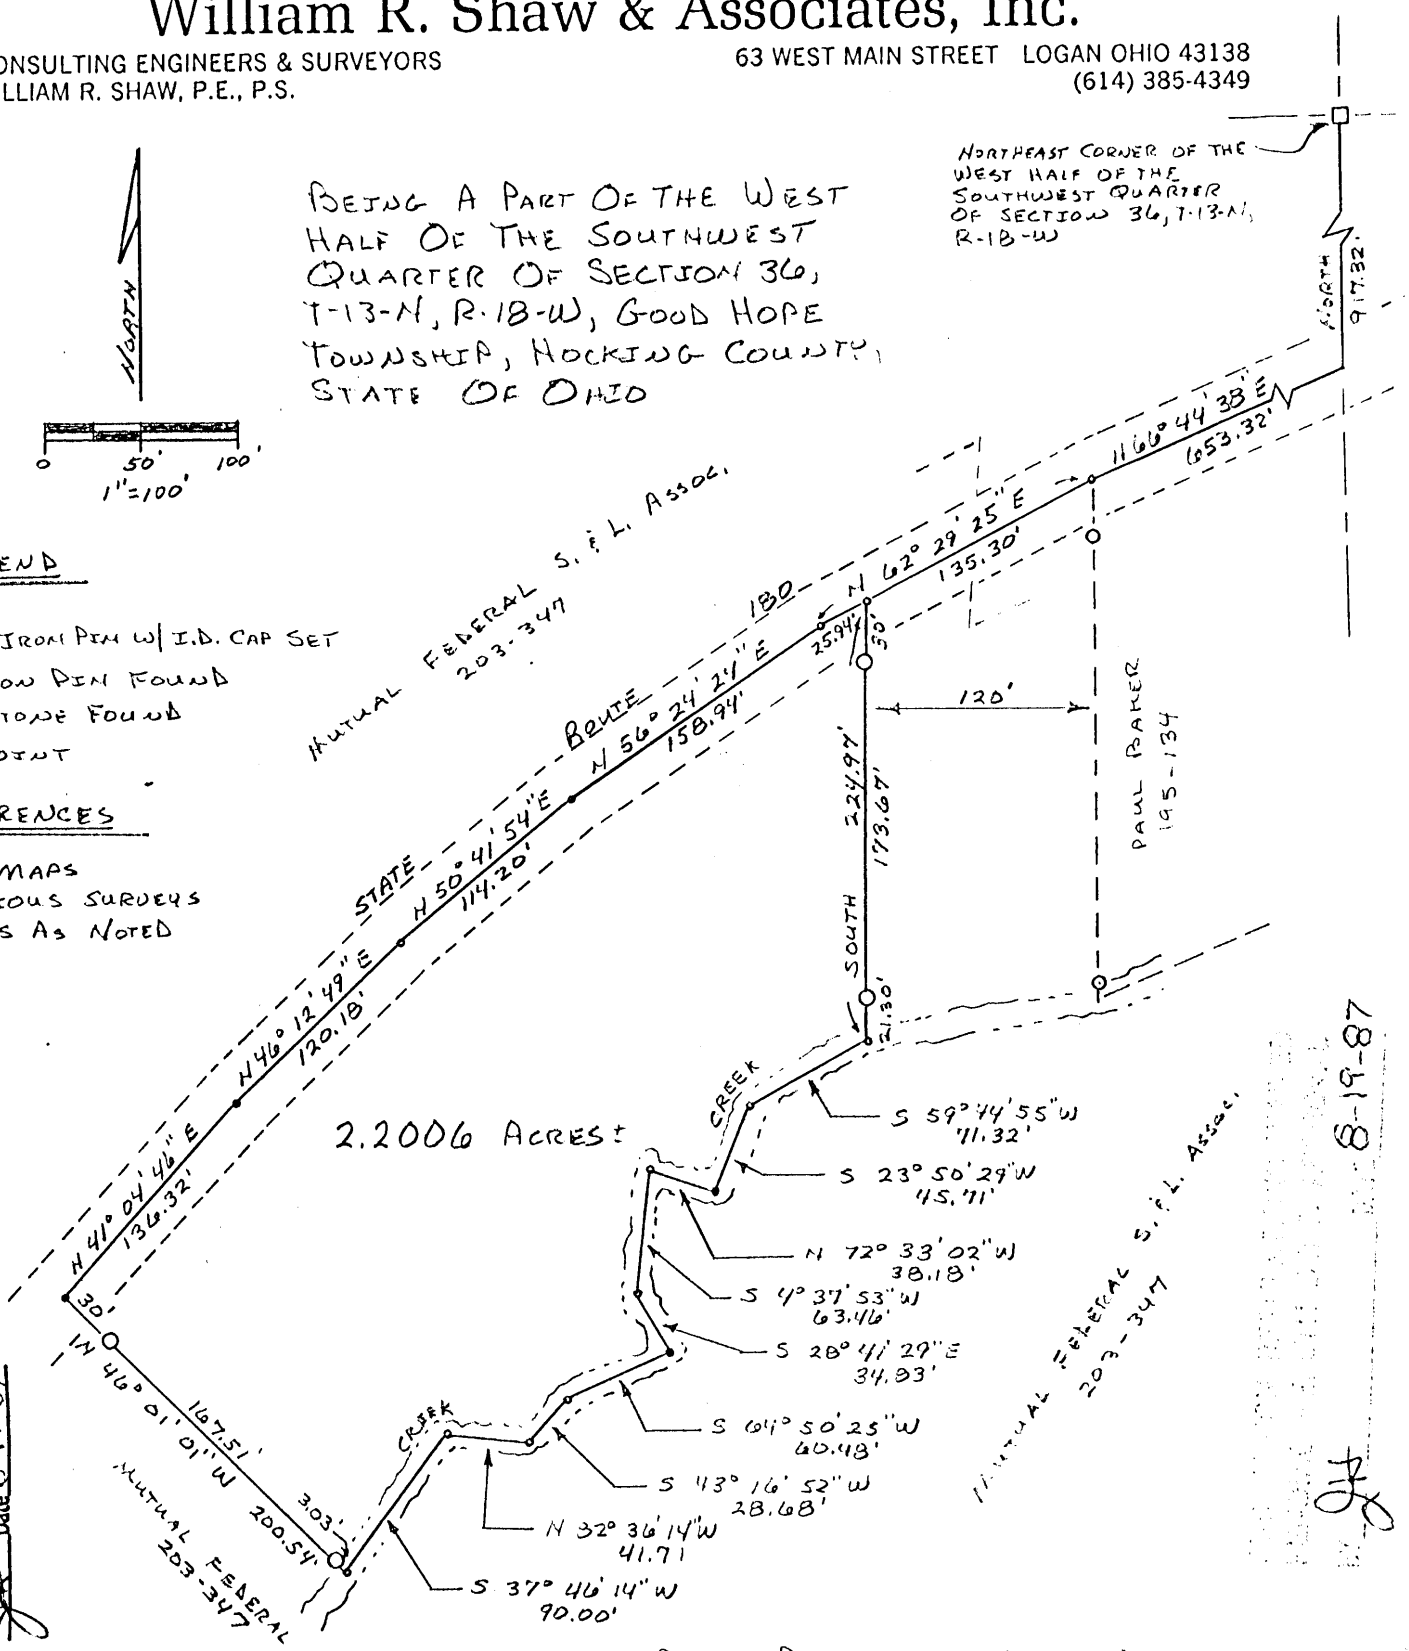 William R. Shaw & Associates, Inc.
ONSULTING ENGINEERS & SURVEYORS
LLIAM R. SHAW, P.E., P.S.
63 WEST MAIN STREET LOGAN OHIO 43138
(614) 385-4349
NORTH
0 50' 100'
1"=100'
BEING A PART OF THE WEST
HALF OF THE SOUTHWEST
QUARTER OF SECTION 36,
T-13-N, R-18-W, GOOD HOPE
TOWNSHIP, HOCKING COUNTY,
STATE OF OHIO
NORTHEAST CORNER OF THE
WEST HALF OF THE
SOUTHWEST QUARTER
OF SECTION 36, T-13-N,
R-18-W
NORTH
917.32'
END
IRON PIN W/ I.D. CAP SET
ON PIN FOUND
TONE FOUND
OINT
RENCES
MAPS
IOUS SURVEYS
S AS NOTED
MUTUAL FEDERAL S. & L. ASSOC.
203-347
STATE ROUTE 180
N 66° 44' 38" E
653.32'
N 62° 29' 25" E
135.30'
25.94'
50'
N 56° 24' 24" E
158.94'
N 50° 41' 54" E
114.20'
N 46° 12' 49" E
120.18'
N 41° 04' 46" E
136.32'
30'
120'
PAUL BAKER
195-134
SOUTH 224.97'
173.67'
21.30'
2.2006 ACRES±
CREEK
S 59° 44' 55" W
71.32'
S 23° 50' 29" W
45.71'
N 72° 33' 02" W
38.18'
S 4° 37' 53" W
63.46'
S 28° 41' 29" E
34.83'
S 64° 50' 25" W
60.48'
S 43° 16' 52" W
28.68'
N 32° 36' 14" W
41.71
S 37° 46' 14" W
90.00'
CREEK
N 46° 01' 01" W 200.54'
167.51'
3.03'
MUTUAL FEDERAL
203-347
MUTUAL FEDERAL S. & L. ASSOC.
203-347
8-19-87